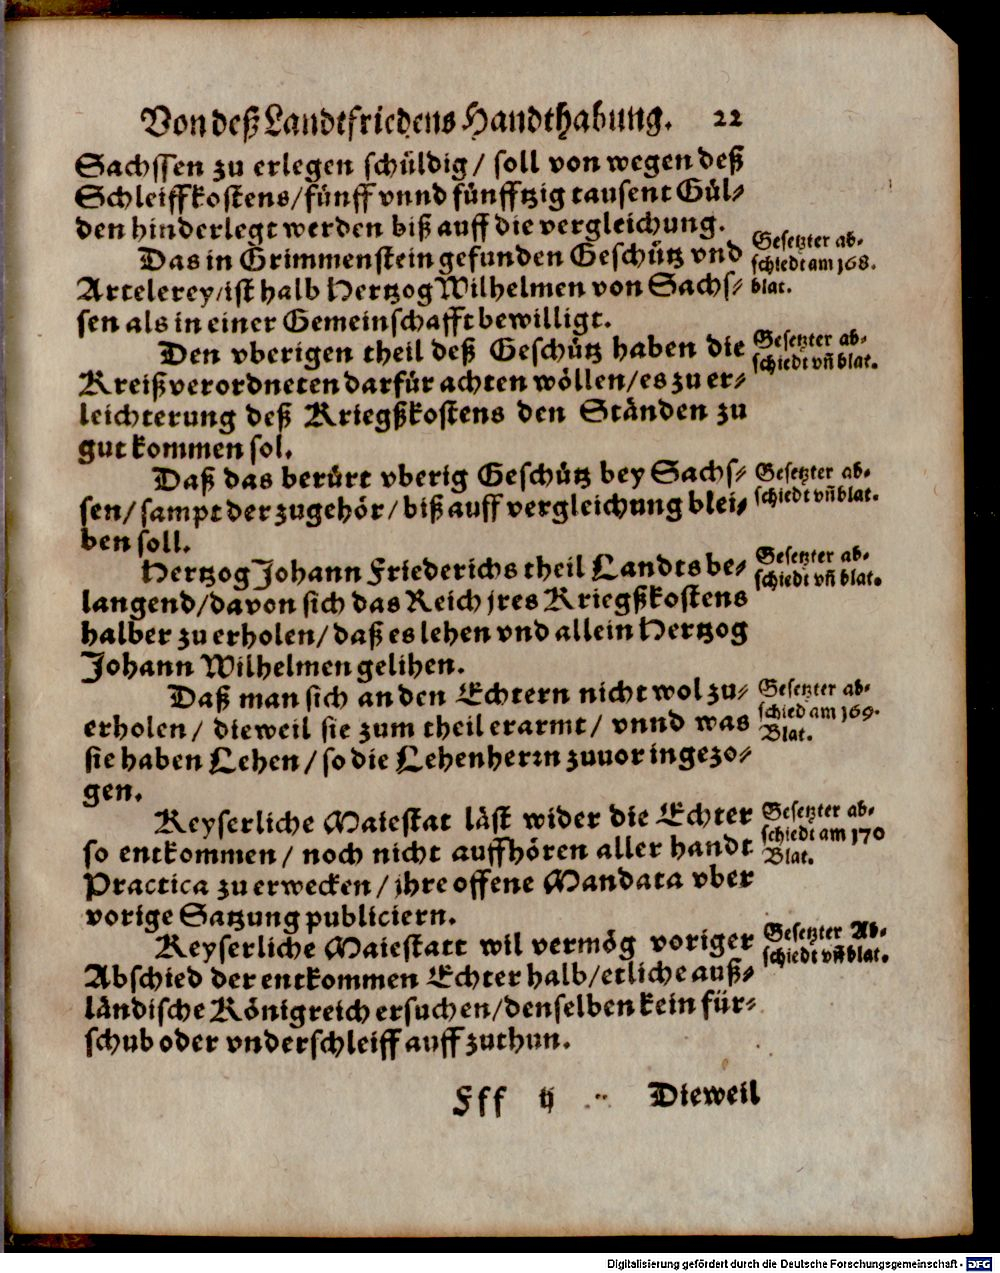 Von deß Landtfriedens Handthabung. 22
Sachssen zu erlegen schüldig / soll von wegen deß
Schleiffkostens / fünff vnnd fünfftzig tausent Gül⸗
den hinderlegt werden biß auff die vergleichung.
Das in Grimmenstein gefunden Geschütz vnd
Artelerey / ist halb Hertzog Wilhelmen von Sachs⸗
sen als in einer Gemeinschafft bewilligt.
Gesetzter ab⸗
schiedt am 168.
blat.
Den vberigen theil deß Geschütz haben die
Kreißverordneten darfür achten wöllen / es zu er⸗
leichterung deß Kriegßkostens den Ständen zu
gut kommen sol.
Gesetzter ab⸗
schiedt vñ blat.
Daß das berürt vberig Geschütz bey Sachs⸗
sen / sampt der zugehör / biß auff vergleichung blei⸗
ben soll.
Gesetzter ab⸗
schiedt vñ blat.
Hertzog Johann Friederichs theil Landts be⸗
langend / davon sich das Reich jres Kriegßkostens
halber zu erholen / daß es lehen vnd allein Hertzog
Johann Wilhelmen gelihen.
Gesetzter ab⸗
schiedt vñ blat.
Daß man sich an den Echtern nicht wol zu⸗
erholen / dieweil sie zum theil erarmt / vnnd was
sie haben Lehen / so die Lehenherrn zuuor ingezo⸗
gen.
Gesetzter ab⸗
schied am 169.
Blat.
Keyserliche Maiestat läst wider die Echter
so entkommen / noch nicht auffhören aller handt
Practica zu erwecken / jhre offene Mandata vber
vorige Satzung publiciern.
Gesetzter ab⸗
schiedt am 170
Blat.
Keyserliche Maiestatt wil vermög voriger
Abschied der entkommen Echter halb / etliche auß⸗
ländische Königreich ersuchen / denselben kein für⸗
schub oder vnderschleiff auff zuthun.
Gesetzter Ab⸗
schiedt vñ blat.
Fff ij Dieweil
Digitalisierung gefördert durch die Deutsche Forschungsgemeinschaft - DFG